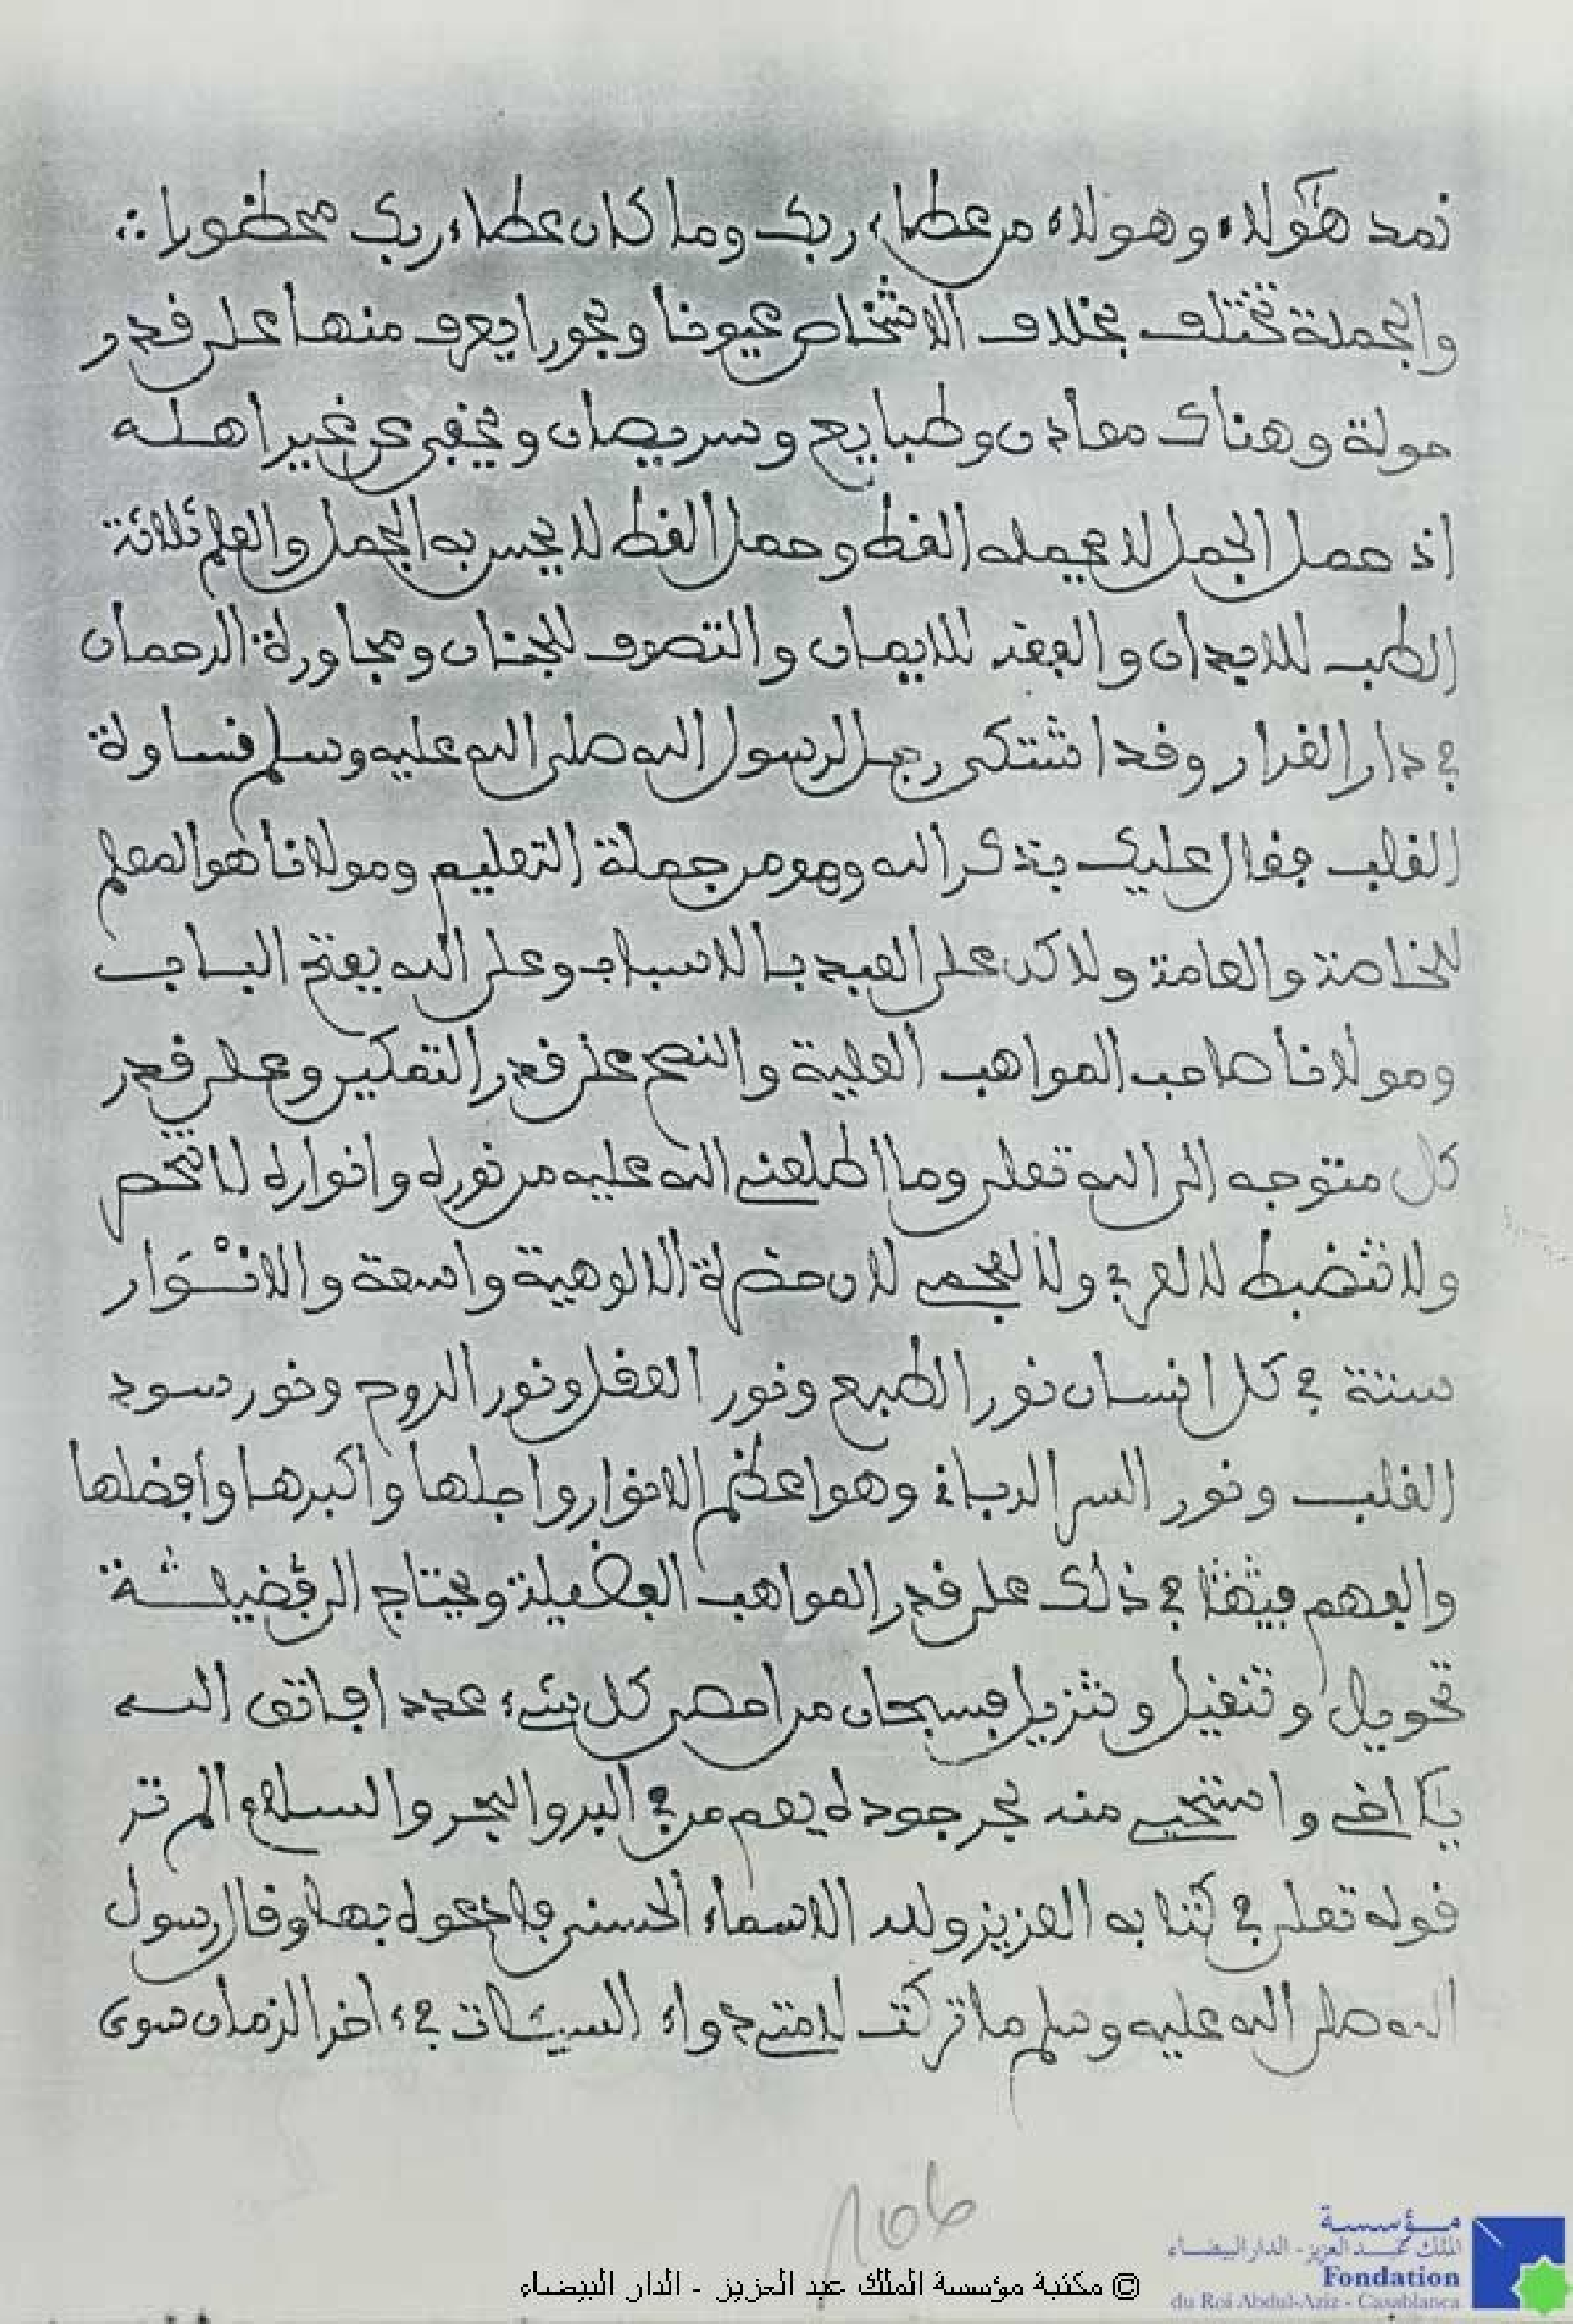 نمد هؤلاء وهولاء من عطاء ربك وما كان عطاء ربك محظورا ∴
والجملة تختلف بخلاف الاشخاص عيونا وبحورا يعرف منها على قدر
حولة وهناك معادن وطبايع وسريصان ويخفى عن غير اهله
اذ حمل الجمل لا يحمله القط وحمل القط لا يحس به الجمل والعلم ثلاثة
الطب للابدان والفقه للايمان والتصوف للجنان ومجاورة الرحمان
في دار القرار وقد اشتكى رجل لرسول الله صلى الله عليه وسلم قساوة
القلب فقال عليك بذكر الله وهو من جملة التعليم ومولانا هو المعلم
للخاصة والعامة ولاكن على العبد بالاسباب وعلى الله يفتح الباب
ومولانا صاحب المواهب العلية والنصح على قدر التفكير وعلى قدر
كل متوجه الى الله تعلى وما اطلعني الله عليه من نوره وانواره لا تخص
ولا تنضبط لا لعربي ولا لعجمي لان حضرة الالوهية واسعة والانوار
ستة في كل انسان نور الطبع ونور العقل ونور الروح ونور سود
القلب ونور السر الرباني وهو اعظم الانوار واجلها واكبرها وافضلها
والفهم في ذلك على قدر المواهب الفضيلة ويحتاج الى فضيلة
تحويل وتنفيل وتنزيل فسبحان من احصى كل شيء عدد افاتق الله
يا اخي وا منه بحر جوده يعم من في البر والبحر والسلام الم تر
قوله تعلى في كتابه العزيز ولله الاسماء الحسنى فادعوه بها وقال رسول
الله صلى الله عليه وسلم ما تركت لامتي دواء السيئات في اخر الزمان سوى
106
© مكتبة مؤسسة الملك عبد العزيز - الدار البيضاء
مؤسسة
الملك عبد العزيز - الدار البيضاء
Fondation
du Roi Abdul-Aziz - Casablanca